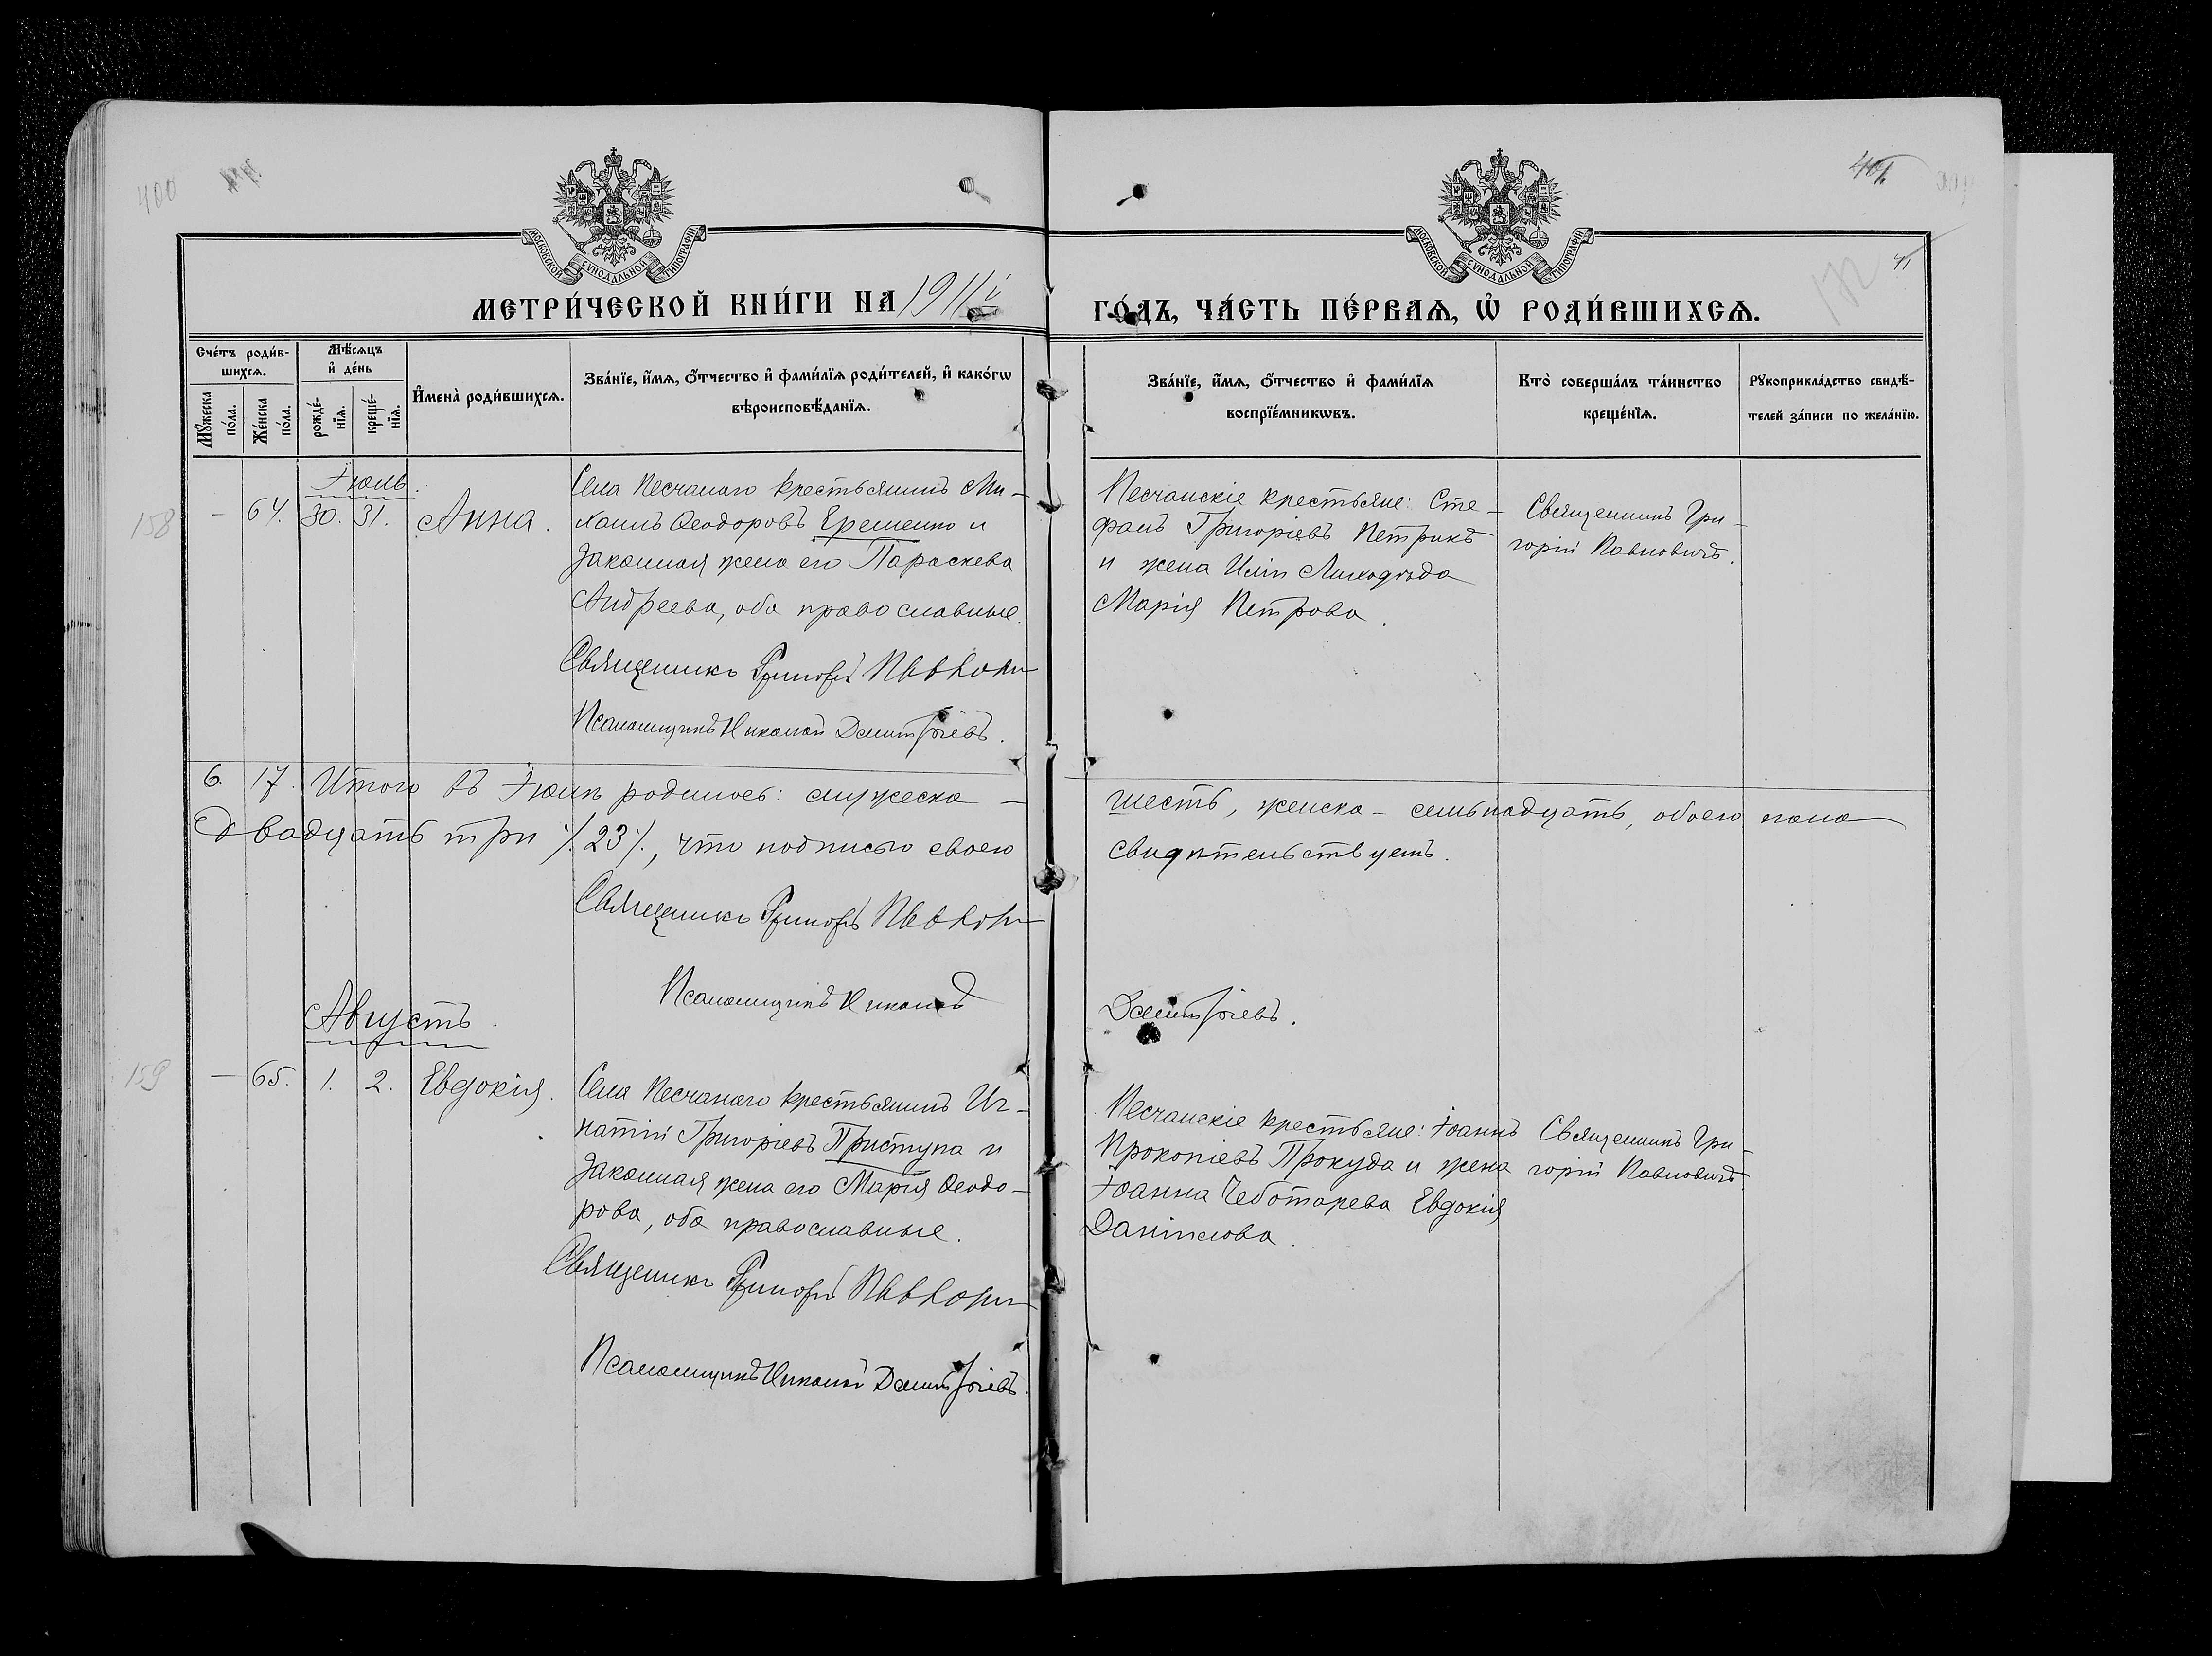 400
401
МОСКОВСКОЙ СѴНОДАЛЬНОЙ ТИПОГРАФІИ
МОСКОВСКОЙ СѴНОДАЛЬНОЙ ТИПОГРАФІИ
172
41
МЕТРИ́ЧЕСКОЙ КНИ́ГИ НА 1911й ГО́ДЪ, ЧА́СТЬ ПЕ́РВАѦ, Ѡ҆ РОДИ́ВШИХСѦ.
Сче́тъ роди́в-
шихсѧ.
Мꙋ́жеска по́ла.
Же́нска по́ла.
Мѣ́сѧцъ и҆ де́нь
рожде́-нїѧ.
креще́-нїѧ.
И҆мена̀ роди́вшихсѧ.
Зва́нїе, и҆́мѧ, ѻ҆́тчество и҆ фами́лїѧ роди́телей, и҆ како́гѡ
вѣроисповѣ́данїѧ.
Зва́нїе, и҆́мѧ, ѻ҆́тчество и҆ фами́лїѧ
воспрїе́мникѡвъ.
Кто̀ соверша́лъ та́инство
креще́нїѧ.
Рꙋкоприкла́дство свидѣ́-
телей за́писи по жела́нїю.
Іюль.
158
- 64. 30. 31. Анна.
Села Песчанаго крестьянинъ Ми-
хаилъ Ѳеодоровъ Ерешенко и
законная жена его Параскева
Андреева, оба православные.
Священникъ Григорій
Псаломщикъ Николай Димитріевъ.
Песчанскіе крестьяне: Сте-
фанъ Григоріевъ Петрикъ
и жена Иліи Лиходѣда
Марія Петрова.
Священникъ Гри-
горій Павловичъ.
6. 17. Итого въ Іюлѣ родилось: мужеска - шесть, женска - семьнадцать, обоего пола
двадцать три ./.23./., что подписью своею свидѣтельствуемъ.
Священникъ Григорій
Псаломщикъ Николай Димитріевъ.
Августъ.
159
- 65. 1. 2. Евдокія.
Села Песчанаго крестьянинъ Иг-
натій Григоріевъ Приступа и
законная жена его Марія Ѳеодо-
рова, оба православные.
Священникъ Григорій
Псаломщикъ Николай Димитріевъ.
Песчанскіе крестьяне: Іоаннъ
Прокопіевъ Прокуда и жена
Іоанна Чеботарева Евдокія
Даніилова.
Священникъ Гри-
горій Павловичъ.